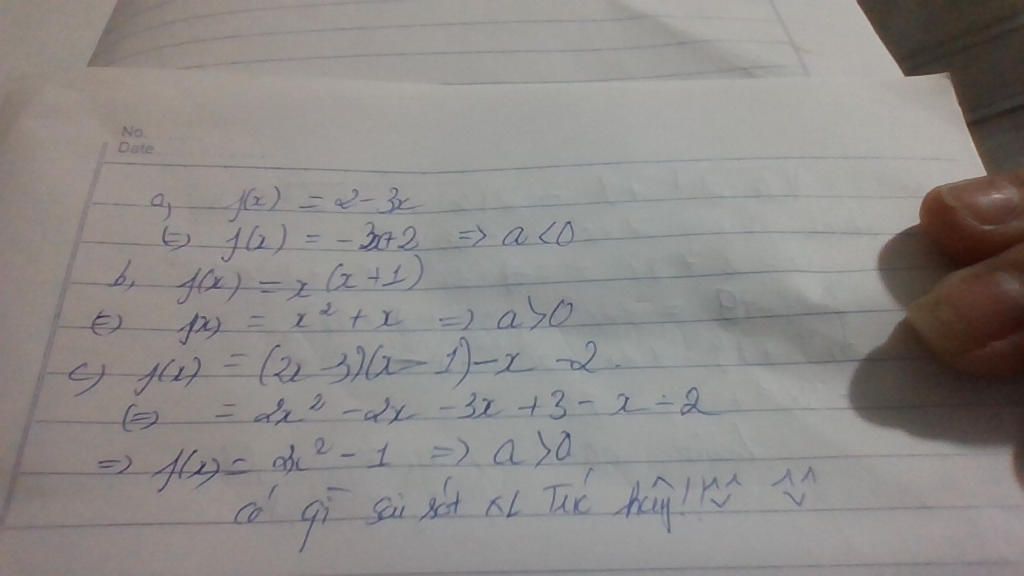 No.
Date
a, f(x) = 2 - 3x
(=) f(x) = -3x+2 => a<0
b, f(x) = x(x+1)
(=) f(x) = x² + x => a>0
c) f(x) = (2x-3)(x-1)-x-2.
(=) = 2x² - 2x - 3x + 3 - x - 2
=> f(x) = 2x² - 1 => a>0
có gì sai sót xL